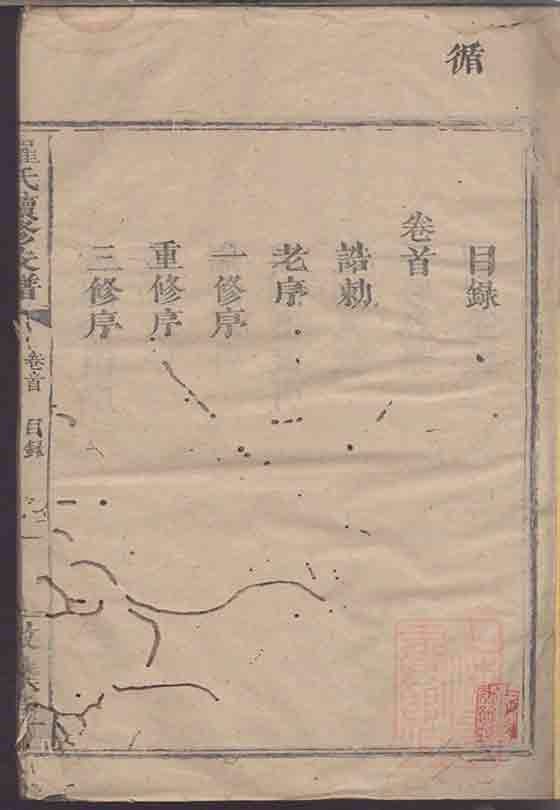 循
目録
卷首
誥勅
老序
一修序
重修序
三修序
羅氏續修支譜
卷首
目録